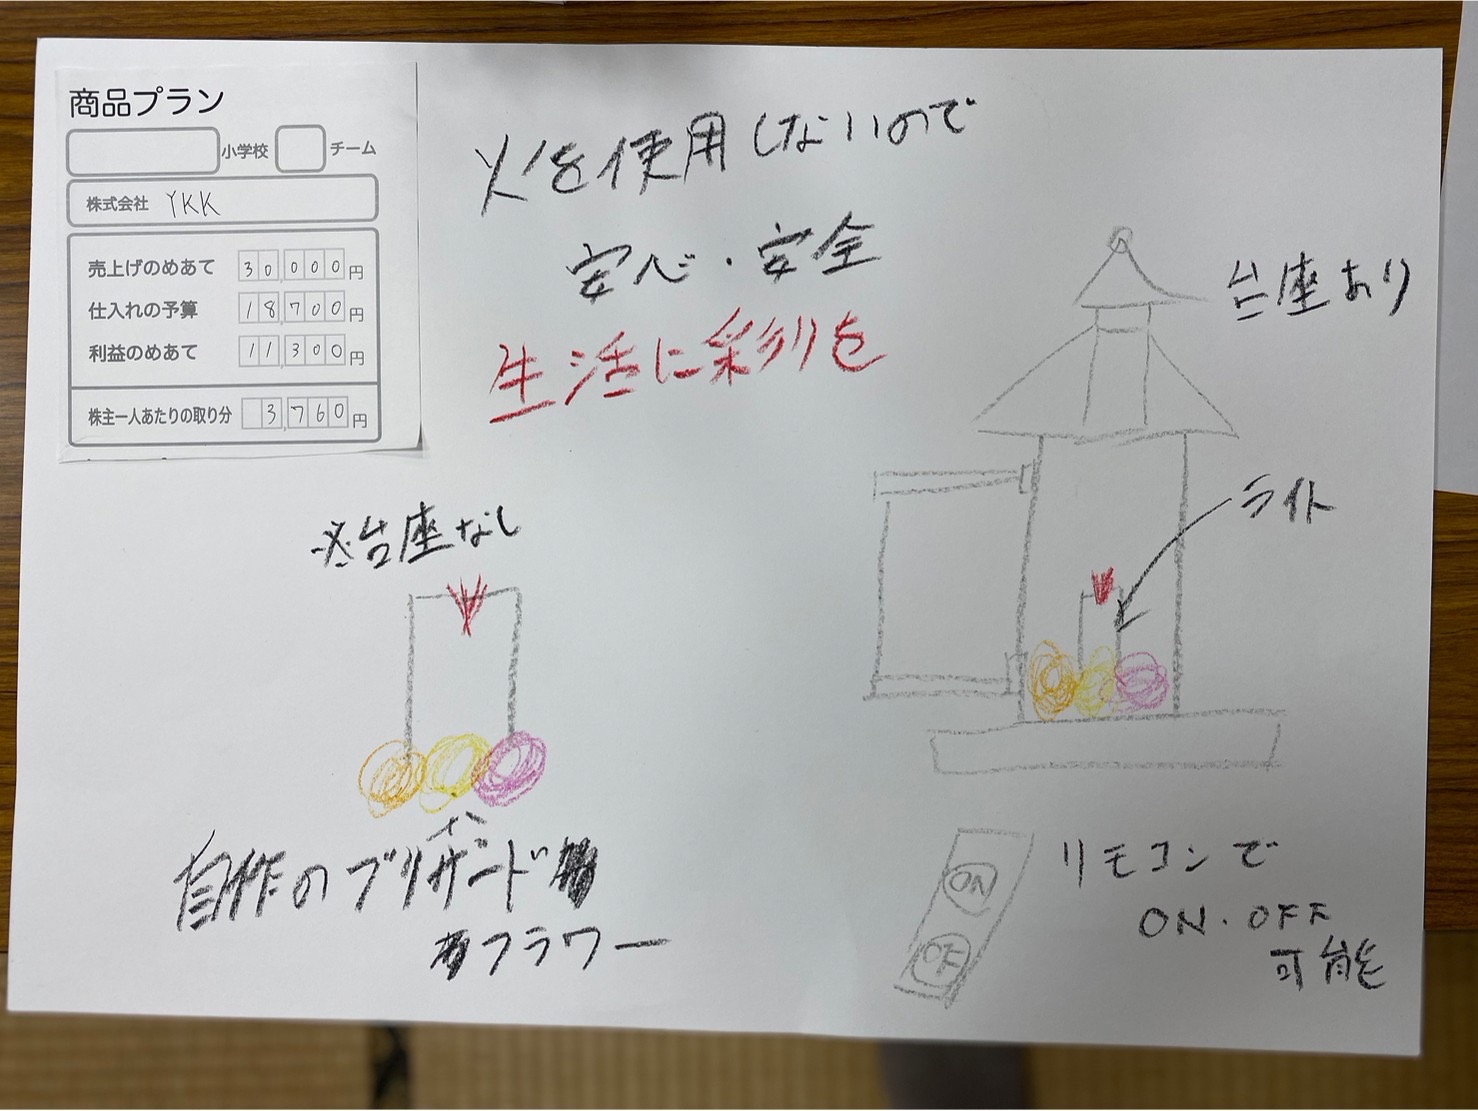 商品プラン
小学校 チーム
株式会社 YKK
売上げのめあて 30,000円
仕入れの予算 18,700円
利益のめあて 11,300円
株主一人あたりの取り分 3,760円
火を使用しないので
安心・安全
生活に彩りを
台座あり
ライト
※台座なし
自作のブリザード
フラワー
ON
OF
リモコンで
ON・OFF
可能